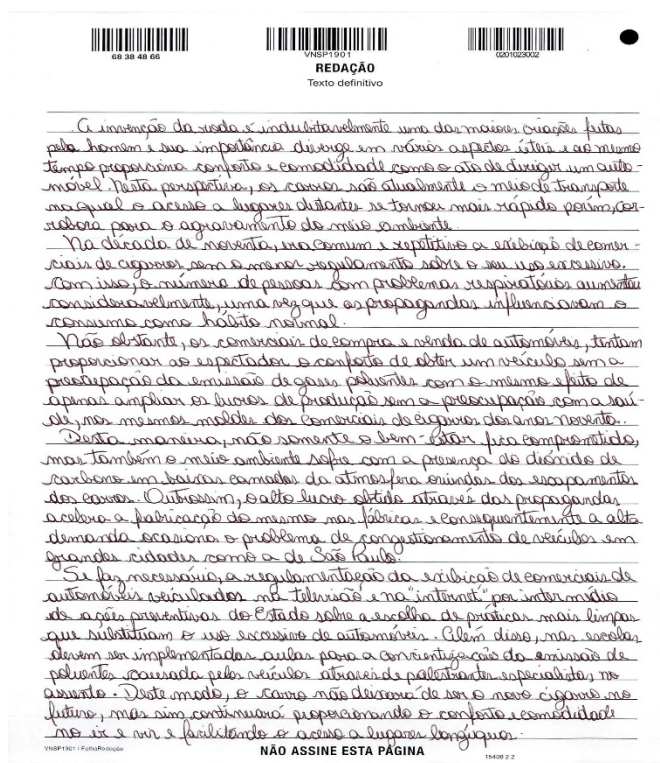 68 38 48 66
VNSP1901
0201023002
REDAÇÃO
Texto definitivo
A invenção da roda é indubitavelmente uma das maiores criações feitas
pelo homem e sua importância diverge em vários aspectos úteis e ao mesmo
tempo proporciona conforto e comodidade como o ato de dirigir um auto-
móvel. Nesta perspectiva, os carros são atualmente o meio de transporte
na qual o acesso a lugares distantes se tornou mais rápido porém, cor-
robora para o agravamento do meio ambiente.
Na década de noventa, era comum e repetitivo a exibição de comer-
ciais de cigarros sem o menor regulamento sobre o seu uso excessivo.
Com isso, o número de pessoas com problemas respiratórios aumentou
consideravelmente, uma vez que as propagandas influenciavam o
consumo como hábito normal.
Não obstante, os comerciais de compra e venda de automóveis, tentam
proporcionar ao espectador o conforto de obter um veículo sem a
preocupação da emissão de gases poluentes com o mesmo efeito de
apenas ampliar os lucros de produção sem a preocupação com a saú-
de, nos mesmos moldes dos comerciais de cigarros dos anos noventa.
Desta maneira, não somente o bem-estar fica comprometido,
mas também o meio ambiente sofre com a presença do dióxido de
carbono em baixas camadas da atmosfera oriundas dos escapamentos
dos carros. Outrossim, o alto lucro obtido através das propagandas
acelera a fabricação do mesmo nas fábricas e consequentemente a alta
demanda ocasiona o problema de congestionamento de veículos em
grandes cidades como a de São Paulo.
Se faz necessário, a regulamentação da exibição de comerciais de
automóveis veiculados na televisão e na "internet" por intermédio
de ações preventivas do Estado sobre a escolha de práticas mais limpas
que substituam o uso excessivo de automóveis. Além disso, nas escolas
devem ser implementadas aulas para a concientização da emissão de
poluentes causada pelos veículos através de palestrantes especialistas no
assunto. Deste modo, o carro não deixará de ser o novo cigarro no
futuro, mas sim continuará proporcionando o conforto e comodidade
no ir e vir e facilitando o acesso a lugares longíquos.
VNSP1901 | FolhaRedação
NÃO ASSINE ESTA PÁGINA
15408 2 2